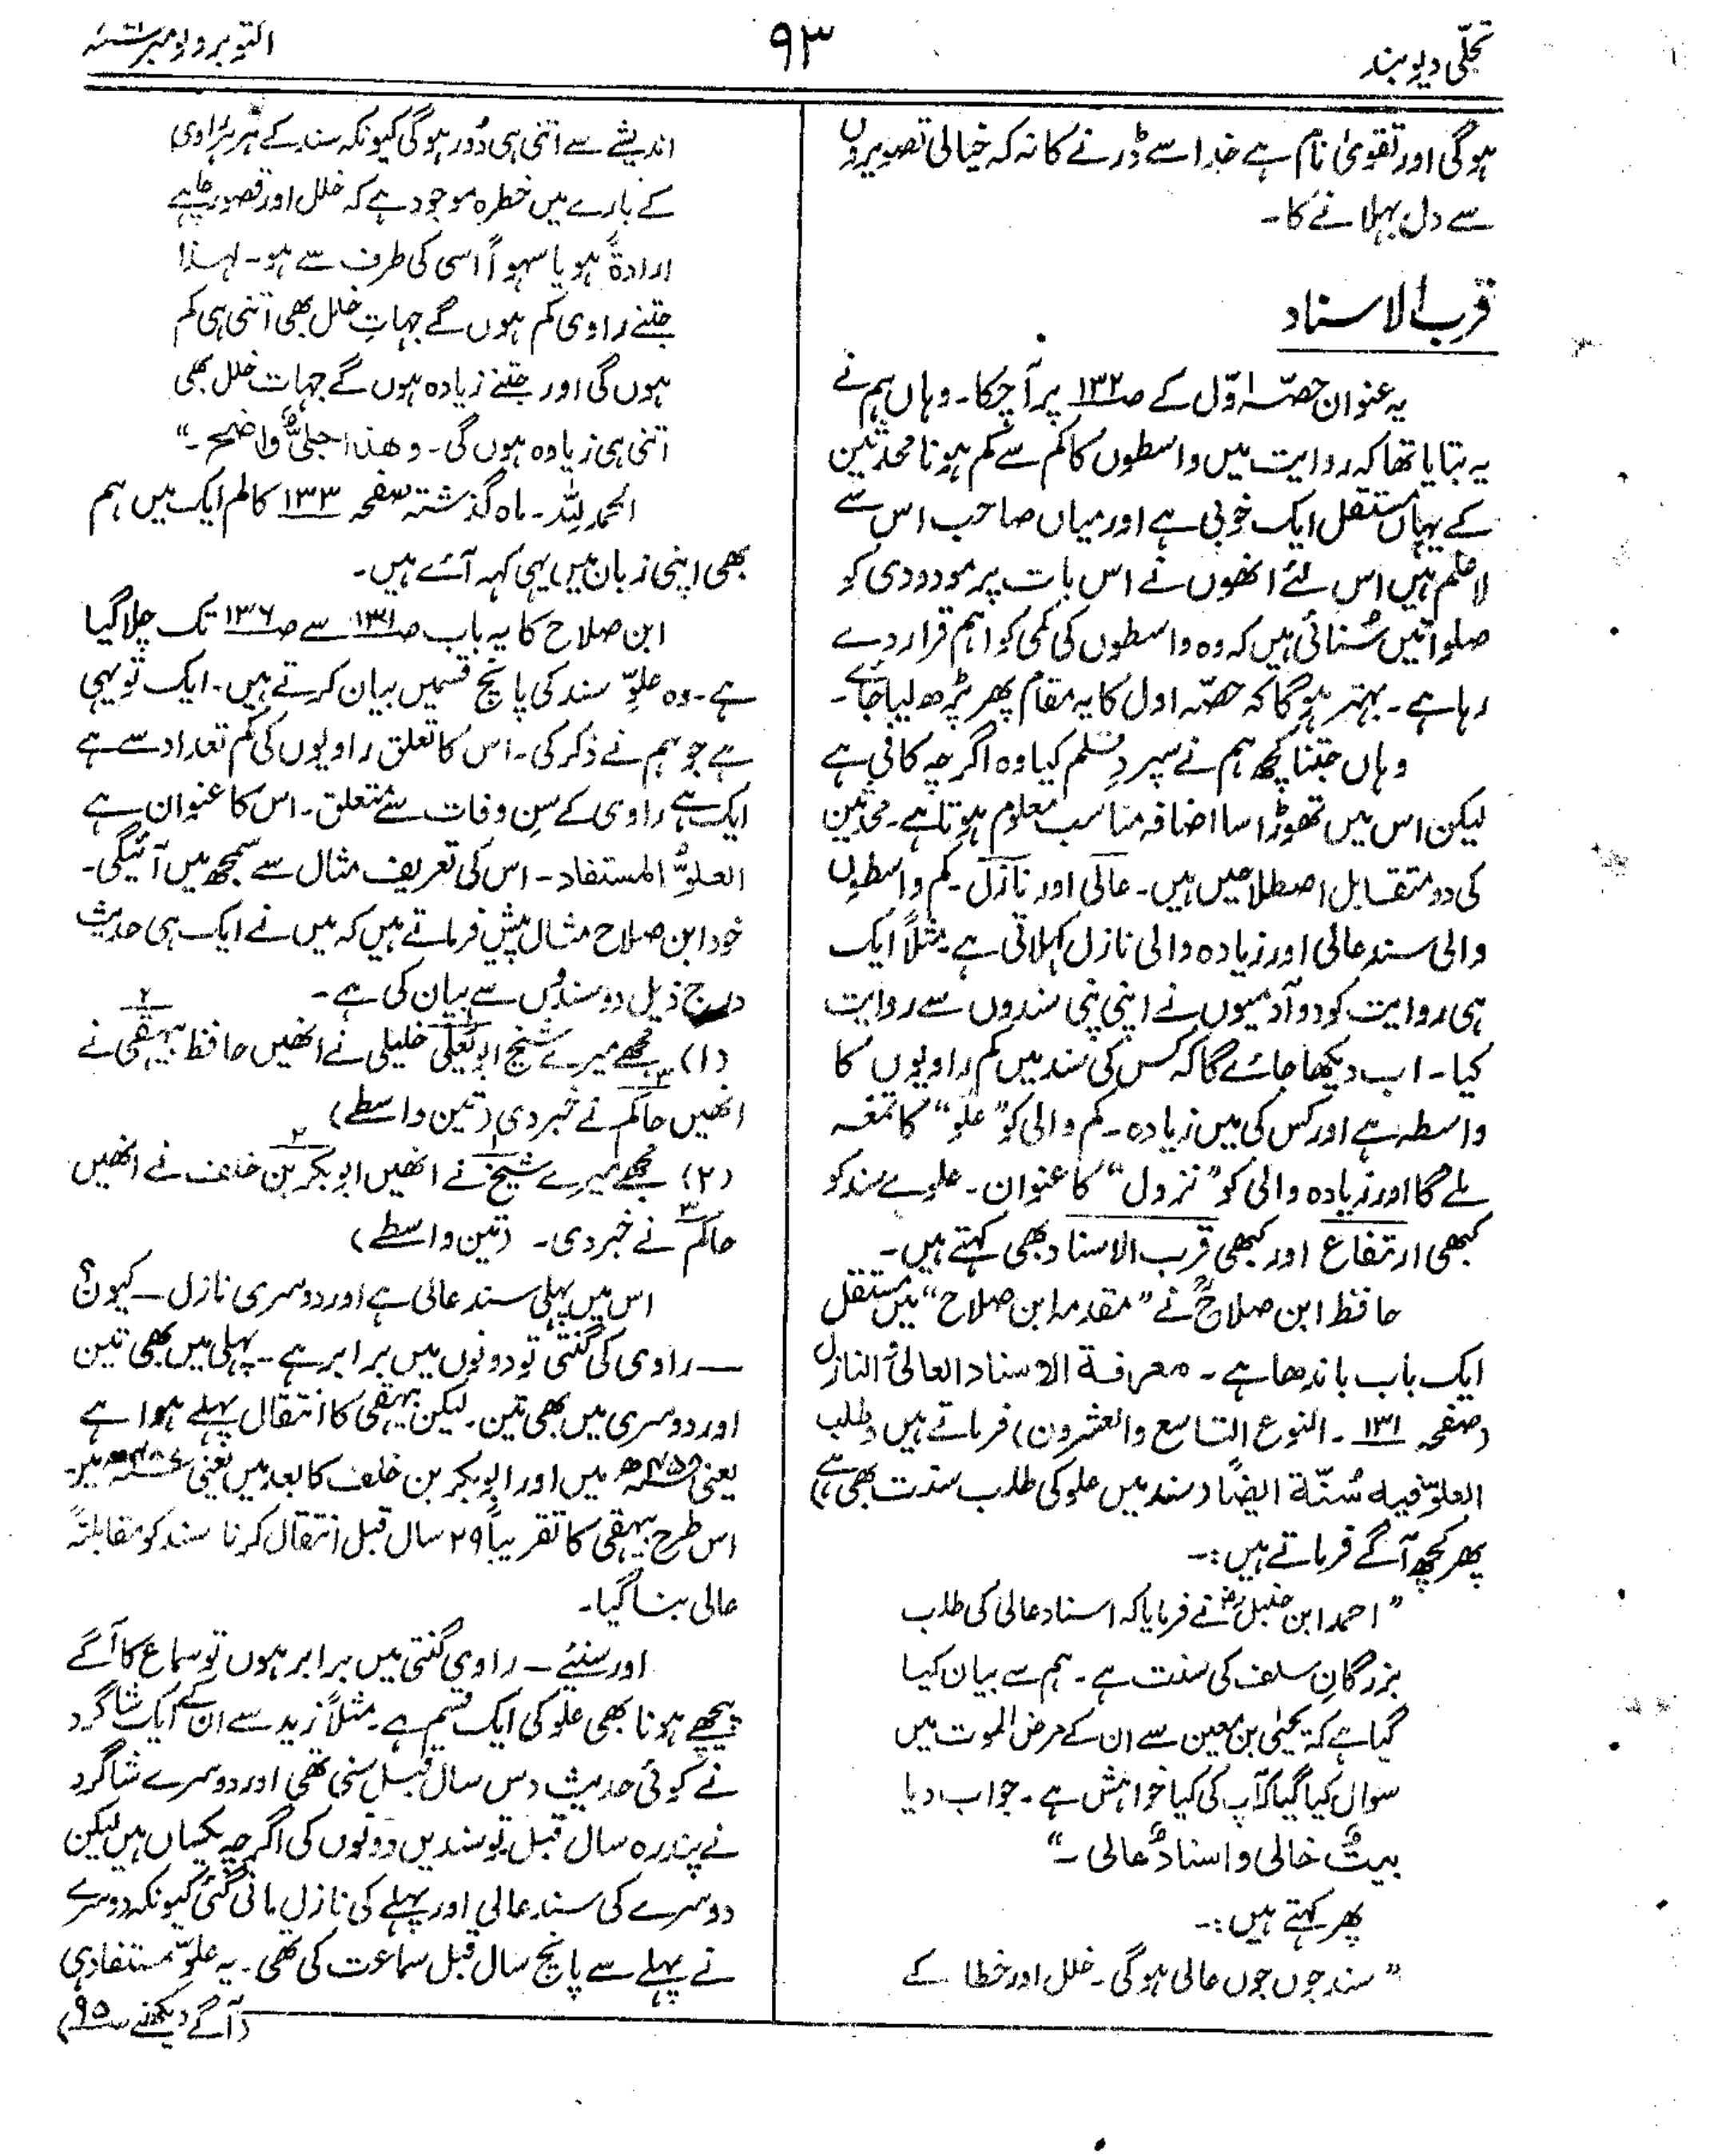 تجلّی دیوبند
۹۳
اکتوبر و نومبر
ہوگی اور تقویٰ نام ہے خدا سے ڈرنے کا نہ کہ خیالی تصویروں
سے دل بہلانے کا۔
قرب الاسناد
یہ عنوان حصّہ اوّل کے صـ۱۳۲ پر آ چکا۔ وہاں ہم نے
یہ بتایا تھا کہ روایت میں واسطوں کا کم سے کم ہونا محدثین
کے یہاں مستقل ایک خوبی ہے اور میاں صاحب اس سے
لا علم ہیں اس لئے انھوں نے اس بات پر مودودی کو
صلواتیں سُنائی ہیں کہ وہ واسطوں کی کمی کو اہم قرار دے
رہا ہے۔ بہتر ہوگا کہ حصّہ اول کا یہ مقام پھر پڑھ لیا جائے۔
وہاں جتنا کچھ ہم نے سپردِ قلم کیا وہ اگرچہ کافی ہے
لیکن اس میں تھوڑا سا اضافہ مناسب معلوم ہوتا ہے۔ محدثین
کی دو متقابل اصطلاحیں ہیں۔ عالی اور نازل۔ کم واسطوں
والی سند عالی اور زیادہ والی نازل کہلاتی ہے۔ مثلاً ایک
ہی روایت کو دو آدمیوں نے اپنی اپنی سندوں سے روایت
کیا۔ اب دیکھا جائے گا کہ کس کی سند میں کم راویوں کا
واسطہ ہے اور کس کی میں زیادہ۔ کم والی کو ”علو“ کا تمغہ
ملے گا اور زیادہ والی کو ”نزول“ کا عنوان۔ علوے سند کو
کبھی ارتفاع اور کبھی قرب الاسناد بھی کہتے ہیں۔
حافظ ابن صلاحؒ نے ”مقدمہ ابن صلاح“ میں مستقل
ایک باب باندھا ہے۔ معرفۃ الاسناد العالی والنازل
(صفحہ ۱۳۱۔ النوع التاسع والعشرون) فرماتے ہیں وطلب
العلوّ فیہ سُنّۃ ایضًا (سند میں علو کی طلب سنت بھی ہے)
پھر کچھ آگے فرماتے ہیں:۔
”احمد ابن حنبلؒ نے فرمایا کہ اسناد عالی کی طلب
بزرگانِ سلف کی سنت ہے۔ ہم سے بیان کیا
گیا ہے کہ یحییٰ بن معین سے ان کے مرض الموت میں
سوال کیا گیا کہ آپ کی کیا خواہش ہے۔ جواب دیا
بیتٌ خالی و اسنادٌ عالی۔“
پھر کہتے ہیں:۔
”سند جوں جوں عالی ہوگی۔ خلل اور خطا کے
اندیشے سے اتنی ہی دُور ہوگی کیونکہ سند کے ہر ہر راوی
کے بارے میں خطرہ موجود ہے کہ خلل اور قصور چاہے
ارادۃً ہو یا سہواً اسی کی طرف سے ہو۔ لہٰذا
جتنے راوی کم ہوں گے جہاتِ خلل بھی اتنی ہی کم
ہوں گی اور جتنے زیادہ ہوں گے جہاتِ خلل بھی
اتنی ہی زیادہ ہوں گی۔ وھٰذا جلیٌّ واضح۔“
الحمد للہ۔ ماہ گذشتہ صفحہ ۱۳۳ کالم ایک میں ہم
بھی اپنی زبان میں یہی کہہ آئے ہیں۔
ابن صلاح کا یہ باب صـ۱۳۱ سے صـ۱۳۶ تک چلا گیا
ہے۔ وہ علوِّ سند کی پانچ قسمیں بیان کرتے ہیں۔ ایک تو یہی
ہے جو ہم نے ذکر کی۔ اس کا تعلق راویوں کی کم تعداد سے ہے
ایک ہے راوی کے سنِ وفات سے متعلق۔ اس کا عنوان ہے
العلوُّ المستفاد۔ اس کی تعریف مثال سے سمجھ میں آئیگی۔
خود ابن صلاح مثال پیش فرماتے ہیں کہ میں نے ایک ہی حدیث
درج ذیل دو سندوں سے بیان کی ہے۔
(۱) مجھے میرے شیخ ابو یعلی خلیلی نے انھیں حافظ بیہقی نے
انھیں حاکم نے خبر دی (تین واسطے)
(۲) مجھے میرے شیخ نے انھیں ابو بکر بن خلف نے انھیں
حاکم نے خبر دی۔ (تین واسطے)
اس میں پہلی سند عالی ہے اور دوسری نازل — کیوں؟
— راوی کی گنتی تو دونوں میں برابر ہے۔ پہلی میں بھی تین
اور دوسری میں بھی تین۔ لیکن بیہقی کا انتقال پہلے ہوا ہے
یعنی ۴۵۸ھ میں اور ابو بکر بن خلف کا بعد میں یعنی میں۔
اس طرح بیہقی کا تقریباً ۲۹ سال قبل انتقال کرنا سند کو مقابلۃً
عالی بنا گیا۔
اور سنیئے — راوی گنتی میں برابر ہوں تو سماع کا آگے
پیچھے ہونا بھی علو کی ایک قسم ہے۔ مثلاً زید سے ان کے ایک شاگرد
نے کوئی حدیث دس سال قبل سنی تھی اور دوسرے شاگرد
نے پندرہ سال قبل تو سندیں دونوں کی اگرچہ یکساں ہیں لیکن
دوسرے کی سند عالی اور پہلے کی نازل مانی گئی کیونکہ دوسرے
نے پہلے سے پانچ سال قبل سماعت کی تھی۔ یہ علوّ مستفاد ہی
(آگے دیکھئے صـ۹۵)